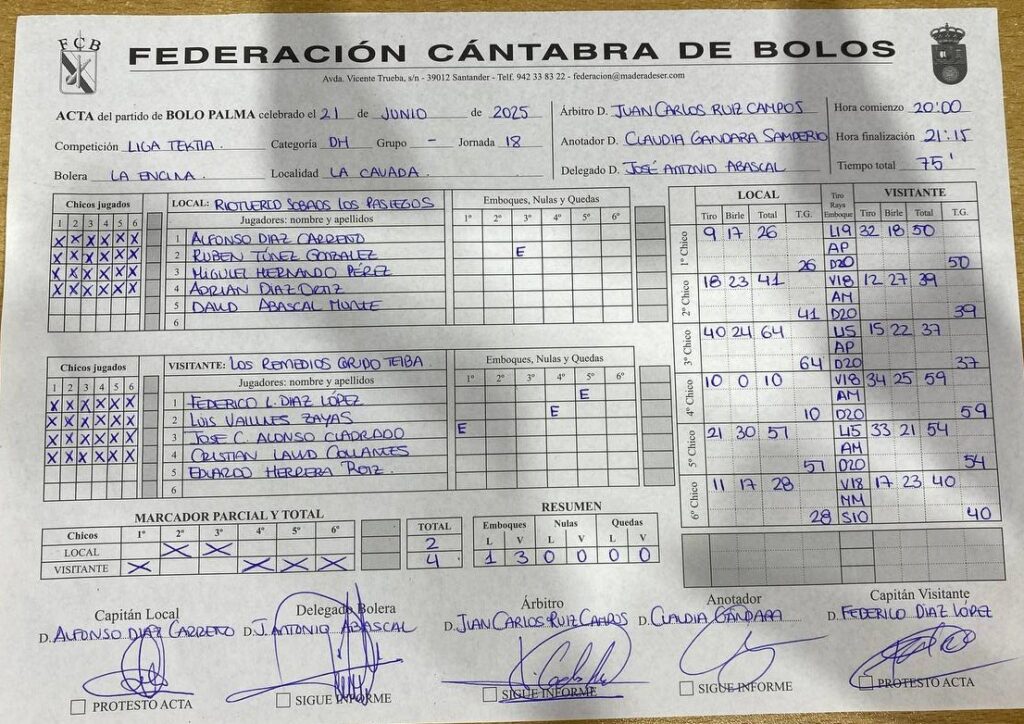 FCB
FEDERACIÓN CÁNTABRA DE BOLOS
Avda. Vicente Trueba, s/n - 39012 Santander - Telf. 942 33 83 22 - federacion@maderadeser.com
ACTA del partido de BOLO PALMA celebrado el 21 de JUNIO de 2025
Competición LIGA TEKTIA. Categoría DH Grupo - Jornada 18
Bolera LA ENCINA. Localidad LA CAVADA.
Árbitro D. JUAN CARLOS RUIZ CAMPOS
Anotador D. CLAUDIA GANDARA SAMPERIO
Delegado D. JOSÉ ANTONIO ABASCAL
Hora comienzo 20:00
Hora finalización 21:15
Tiempo total 75'
Chicos jugados
1 2 3 4 5 6
X X X X X X
X X X X X X
X X X X X X
X X X X X X
LOCAL: RIOTUERTO SOBAOS LOS PASIEGOS
Jugadores: nombre y apellidos
1 ALFONSO DIAZ CARRENO
2 RUBEN TÚNEZ GONZALEZ
3 MIGUEL HERNANDO PÉREZ
4 ADRIAN DIAZ ORTIZ
5 DAVID ABASCAL MONTE
6
Emboques, Nulas y Quedas
1º 2º 3º 4º 5º 6º
E
Chicos jugados
1 2 3 4 5 6
X X X X X X
X X X X X X
X X X X X X
X X X X X X
VISITANTE: LOS REMEDIOS GRUPO TEIBA
Jugadores: nombre y apellidos
1 FEDERICO L. DIAZ LÓPEZ
2 LUIS VALLINES ZAYAS
3 JOSE C. ALONSO CUADRADO
4 CRISTIAN LAVID COLLANTES
5 EDUARDO HERRERA ROIZ.
6
Emboques, Nulas y Quedas
1º 2º 3º 4º 5º 6º
E
E
E
LOCAL
Tiro Raya Emboque
VISITANTE
Tiro Birle Total T.G.
Tiro Birle Total T.G.
1º Chico 9 17 26 L19 32 18 50
AP
26 D20 50
2º Chico 18 23 41 V18 12 27 39
AM
41 D20 39
3º Chico 40 24 64 L15 15 22 37
AP
64 D20 37
4º Chico 10 0 10 V18 34 25 59
AM
10 D20 59
5º Chico 21 30 51 L15 33 21 54
AM
51 D20 54
6º Chico 11 17 28 V18 17 23 40
NM
28 S10 40
MARCADOR PARCIAL Y TOTAL
Chicos 1º 2º 3º 4º 5º 6º TOTAL
LOCAL X X 2
VISITANTE X X X X 4
RESUMEN
Emboques Nulas Quedas
L V L V L V
1 3 0 0 0 0
Capitán Local
D. ALFONSO DIAZ CARRENO
PROTESTO ACTA
Delegado Bolera
D. J. ANTONIO ABASCAL
SIGUE INFORME
Árbitro
D. JUAN CARLOS RUIZ CAMPOS
SIGUE INFORME
Anotador
D. CLAUDIA GÁNDARA
SIGUE INFORME
Capitán Visitante
D. FEDERICO DÍAZ LÓPEZ
PROTESTO ACTA